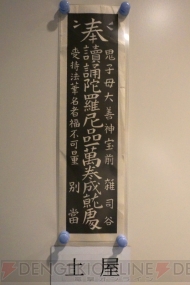 奉
鬼子母大善神宝前 雑司谷
讀誦陀羅尼品一萬巻成就處
受持法華名者福不可量 別當
土屋
DENGEKI ONLINE